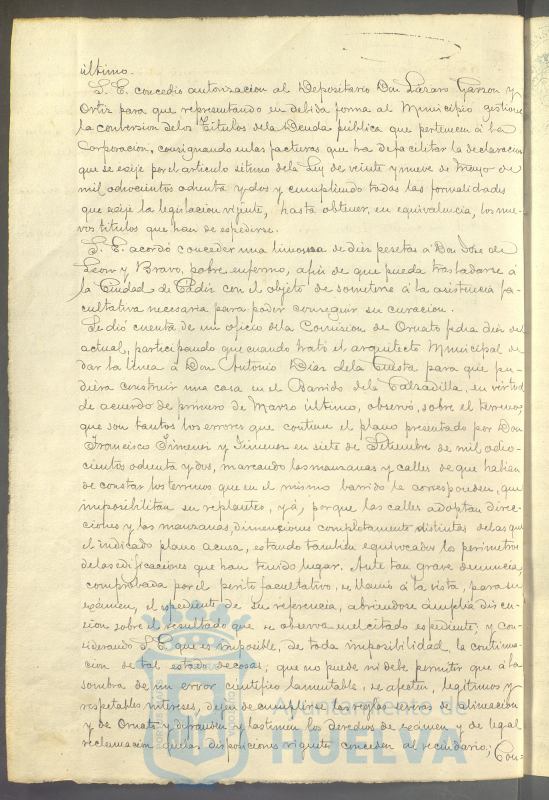 último.
S. E. concedió autorizacion al Depositario Don Lázaro Garzon y
Ortiz para que representando en debida forma al Municipio gestione
la conversion delos Titulos dela Deuda pública que pertenecen á la
Corporacion, consignando enlas facturas que ha defacilitar la declaracion
que se exije por el articulo sétimo dela Ley de veinte y nueve de Mayo de
mil ochocientos ochenta y dos y cumpliendo todas las formalidades
que exije la legislacion vijente, hasta obtener, en equivalencia, los nue-
vos titulos que han de espedirse.
S. E. acordó conceder una limosna de diez pesetas á Don José de
Leon y Bravo, pobre enfermo, afin de que pueda trasladarse á
la Ciudad de Cádiz con el objeto de someterse á la asistencia fa-
cultativa necesaria para poder conseguir su curacion.
Se dió cuenta de un oficio dela Comision de Ornato fecha diez del
actual, participando que cuando trató el arquitecto Municipal de
dar la linea á Don Antonio Diaz dela Cuesta para que pu-
diera construir una casa en el Barrido dela Calzadilla, en virtud
de acuerdo de primero de Marzo último, observó, sobre el terreno,
que son tantos los errores que contiene el plano presentado por Don
Francisco Jimenez y Jimenez en siete de Setiembre de mil ocho-
cientos ochenta y dos, marcando las manzanas y calles de que habian
de constar los terrenos que en el mismo barrido le corresponden, que
imposibilitan su replanteo, yá, porque las calles adoptan direc-
ciones y las manzanas, dimenciones completamente distintas delas que
el indicado plano acusa, estando tambien equivocados los perimetros
delas edificaciones que han tenido lugar. Ante tan grave denuncia,
comprobada por el perito facultativo, se llamó á la vista, para su
exámen, el espediente de su referencia, abriendose ámplia discu-
sion sobre el resultado que se observa enel citado espediente; y con-
siderando S. E. que es imposible, de toda imposibilidad, la continua-
cion de tal estado de cosas; que no puede ni debe permitir que á la
sombra de un error cientifico lamentable, se afecten, legitimos y
respetables intereses, dejen de cumplirse las reglas serio de alineacion
y de Ornato y difunden y lastimen los derechos de exámen y de legal
reclamacion que las disposiciones vigentes conceden al vecindario; Con-
Ayuntamiento de
HUELVA